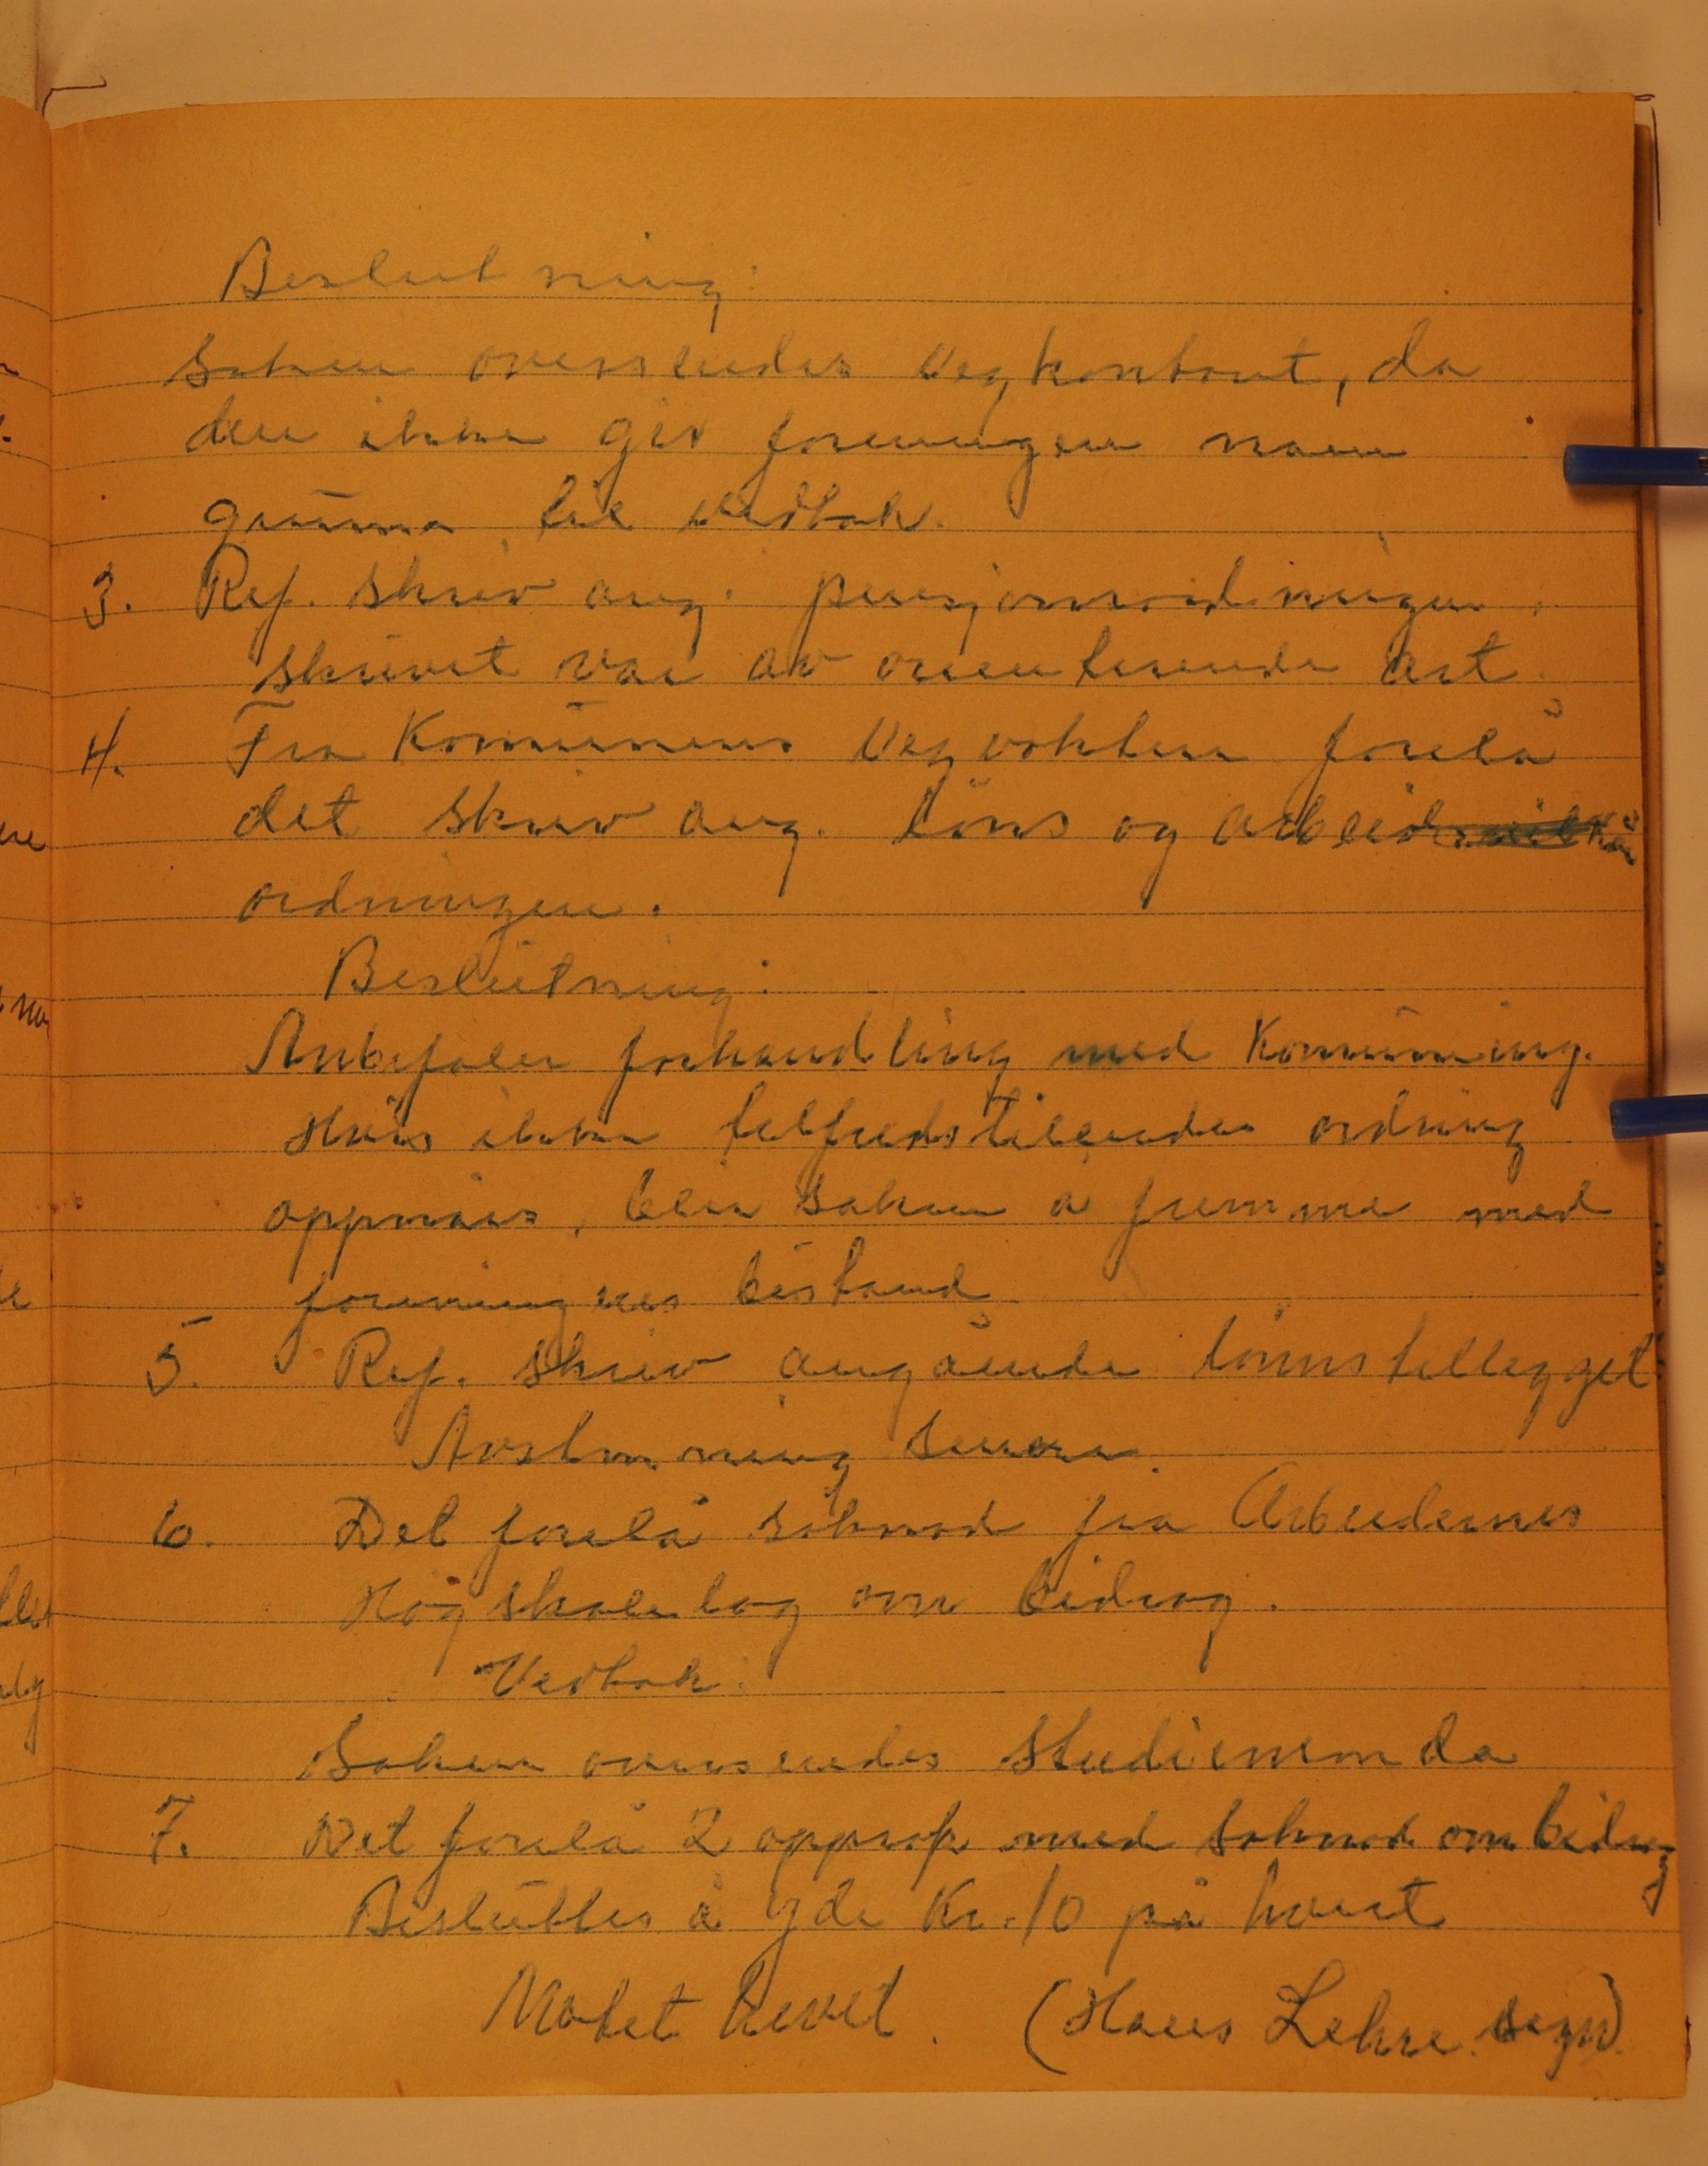 Beslutning:
Saken oversendes Vegkontoret, da
den ikke gir foreningen noen
grunn til vedtak.
3. Ref. skriv ang. pensjonsordningen.
Skrivet var av orienterende art.
4. Fra Kommunens Vegvoktere forelå
det skriv ang. löns og arbeids
ordningen.
Beslutning:
Anbefaler forhandling med Kommuneing.
Hvis ikke tilfredstilendes ordning
oppnåes, blir saken å fremme med
foreningens bistand
5. Ref. skriv angående lönnstillegget
Avstemning senere.
6. Det forelå söknad fra Arbeidernes
Högskolelag om bidrag.
Vedtak:
Saken oversendes Studienemnda
7. Det forelå 2 opprop med soknad om bidrag
Besluttes å yde Kr. 10 på hvert
Motet hevet. (Hans Lehre. sign)